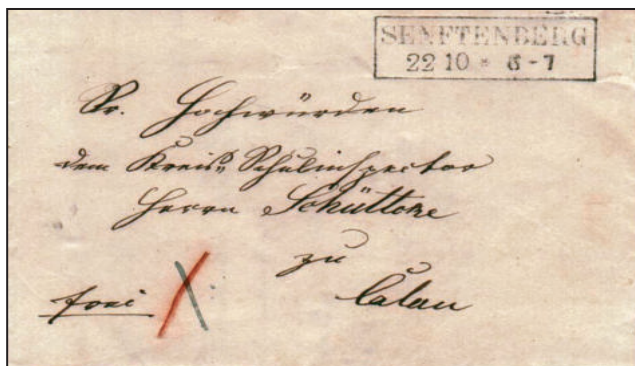 SENFTENBERG
22 10 * 6-7
Sr. Hochwürden
dem Kreis-Schulinspector
Herrn Schüttcke
zu
Calau
frei